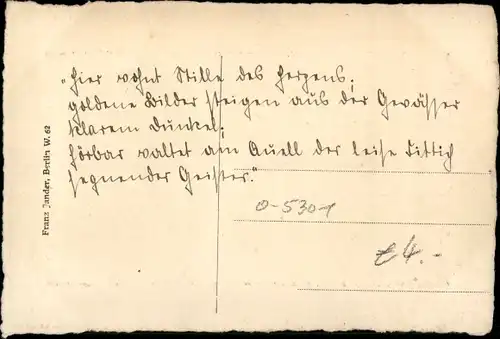 „Hier wohnt Stille des Herzens;
goldene Bilder steigen aus der Gewässer
klarem Dunkel;
hörbar waltet am Quell der leise Fittich
segnender Geister."
0-530-1
€4.-
Franz Jander, Berlin W. 62